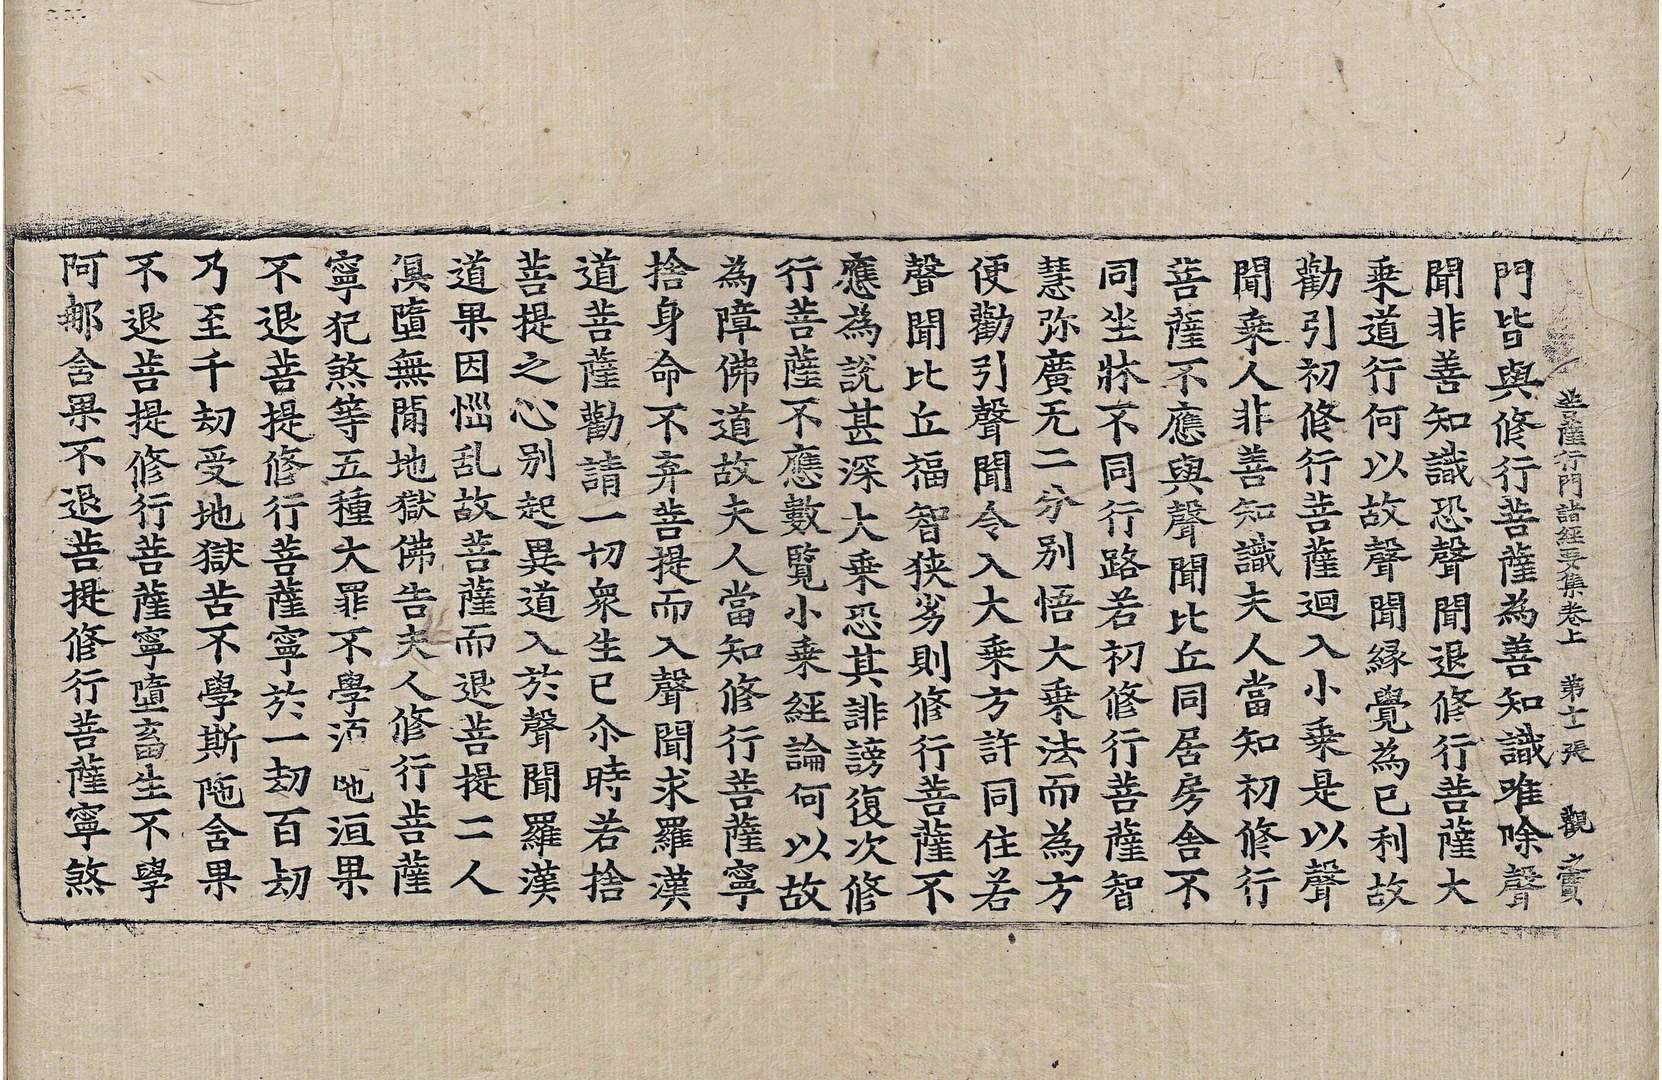 菩薩行門諸經要集卷上 第十一張 觀 之寶
門皆與修行菩薩為善知識唯除聲
聞非善知識恐聲聞退修行菩薩大
乘道行何以故聲聞緣覺為已利故
勸引初修行菩薩迴入小乘是以聲
聞乘人非善知識夫人當知初修行
菩薩不應與聲聞比丘同居房舍不
同坐牀不同行路若初修行菩薩智
慧弥廣无二分别悟大乘法而為方
便勸引聲聞令入大乘方許同住若
聲聞比丘福智狹劣則修行菩薩不
應為說甚深大乘恐其誹謗復次修
行菩薩不應數覽小乘經論何以故
為障佛道故夫人當知修行菩薩寧
捨身命不弃菩提而入聲聞求羅漢
道菩薩勸請一切衆生已尒時若捨
菩提之心别起異道入於聲聞羅漢
道果因惱乱故菩薩而退菩提二人
俱墮無閒地獄佛告夫人修行菩薩
寧犯煞等五種大罪不學須陁洹果
不退菩提修行菩薩寧於一劫百劫
乃至千劫受地獄苦不學斯陁含果
不退菩提修行菩薩寧墮畜生不學
阿那含果不退菩提修行菩薩寧煞